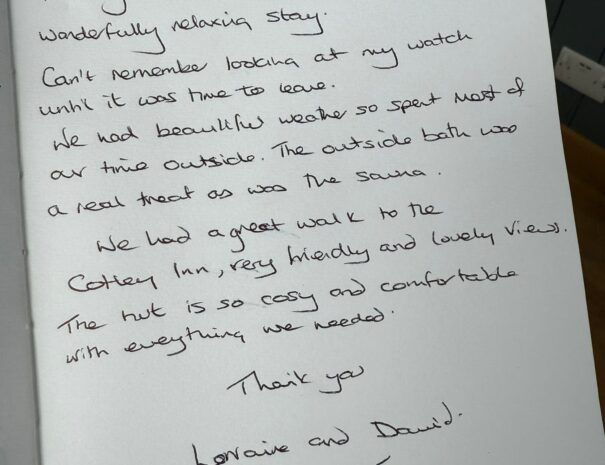 wonderfully relaxing stay.
Can't remember looking at my watch
until it was time to leave.
We had beautiful weather so spent most of
our time outside. The outside bath was
a real treat as was the sauna.
We had a great walk to the
Cotley Inn, very friendly and lovely views.
The hut is so cosy and comfortable
with everything we needed.
Thank you
Lorraine and David.